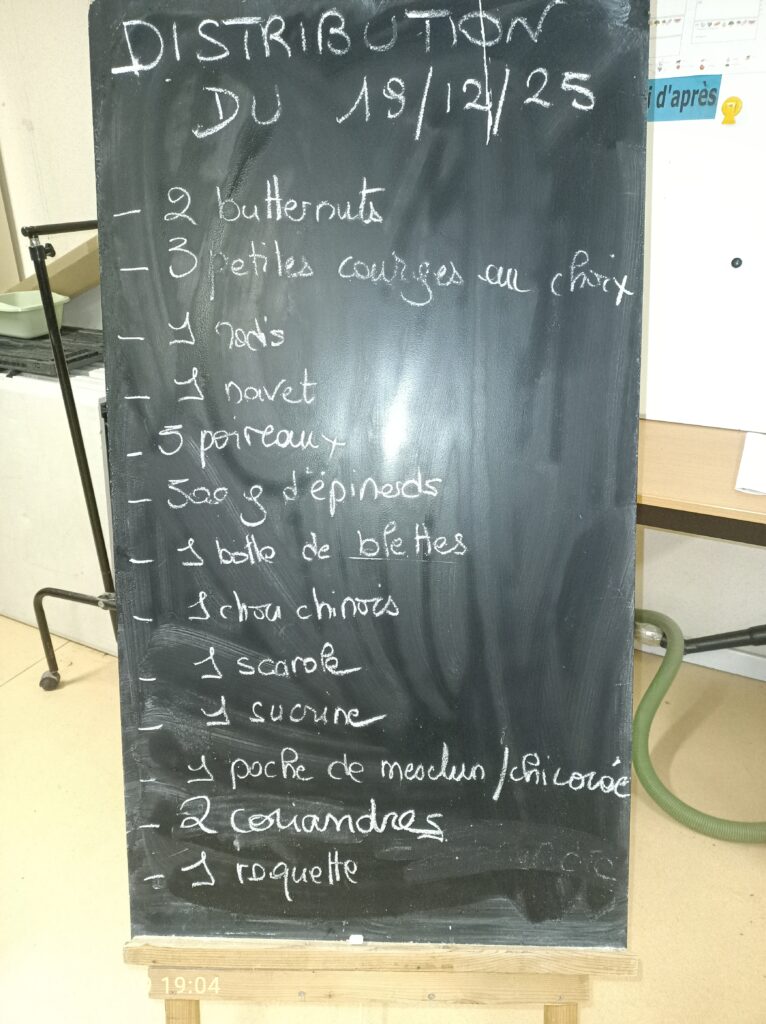 DISTRIBUTION
DU 18/12/25
- 2 butternuts
- 3 petites courges au choix
- 1 radis
- 1 navet
- 5 poireaux
- 500 g d'épinards
- 1 botte de blettes
- 1 chou chinois
- 1 scarole
- 1 sucrine
- 1 poche de mesclun/chicorée
- 2 coriandres
- 1 roquette
i d'après
19:04